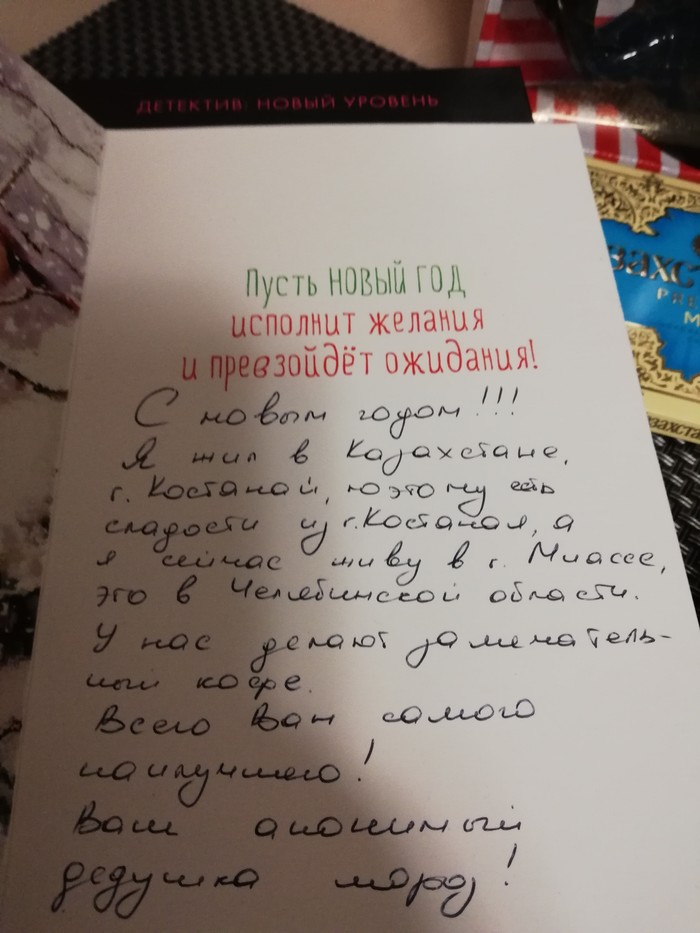 ДЕТЕКТИВ: НОВЫЙ УРОВЕНЬ
Пусть НОВЫЙ ГОД
исполнит желания
и превзойдёт ожидания!
С новым годом!!!
Я жил в Казахстане,
г. Костанай, поэтому есть
сладости из г. Костаная, а
я сейчас живу в г. Миассе,
это в Челябинской области.
У нас делают замечатель-
ный кофе.
Всего Вам самого
наилучшего!
Ваш анонимный
дедушка мороз!